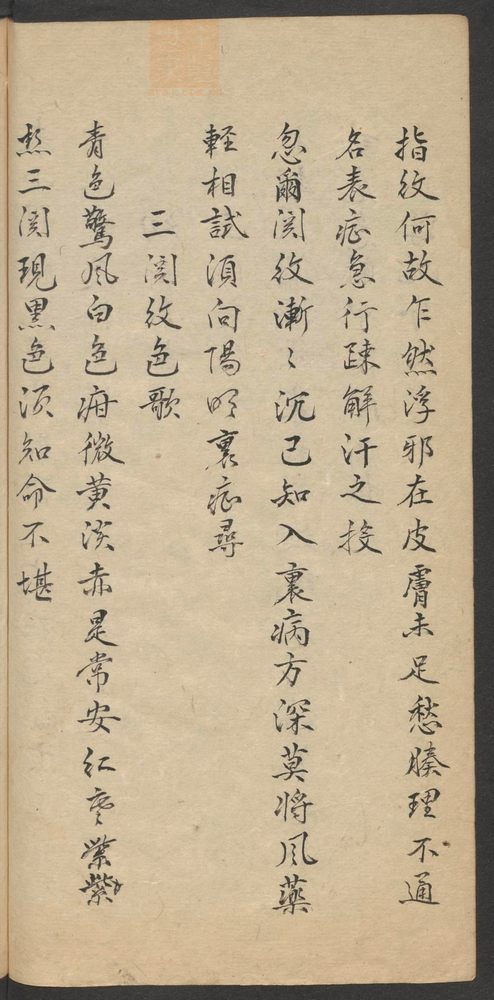 指紋何故乍然浮邪在皮膚未足愁腠理不通
名表症急行疎解汗之投
忽爾関紋漸〻沉已知入裏病方深莫将風薬
軽相試須向陽明裏症尋
三関紋色歌
青色驚风白色疳微黄淡赤是常安紅寒紫
熱三関現黒色須知命不堪